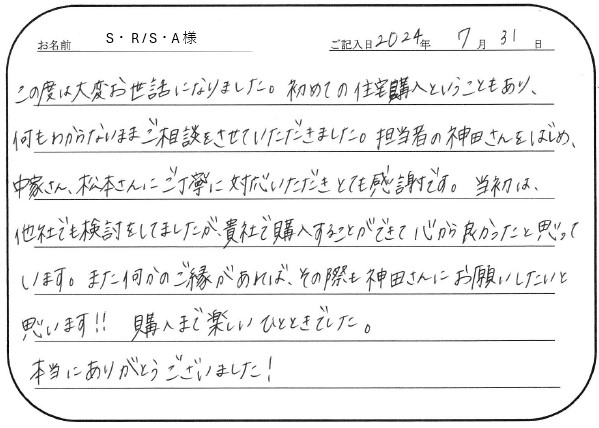 お名前 S・R/S・A様 ご記入日 2024年 7月 31日
この度は大変お世話になりました。初めての住宅購入ということもあり、
何もわからないままご相談をさせていただきました。担当者の神田さんをはじめ、
中家さん、松本さんにご丁寧に対応いただきとても感謝です。当初は、
他社でも検討をしてましたが、貴社で購入することができて心から良かったと思って
います。また何かのご縁があれば、その際も神田さんにお願いしたいと
思います!! 購入まで楽しいひとときでした。
本当にありがとうございました!